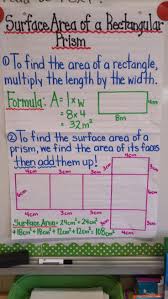 Surface Area of a Rectangular
Prism
① To find the area of a rectangle,
multiply the length by the width.
Formula: A = l x w
= 8 x 4
= 32m²
4m
8m
② To find the surface area of a
prism, we find the area of its faces
then add them up!
4cm
3cm
3cm
6cm
4cm
3cm
4cm
3cm
Surface Area = 24cm² + 24cm² +
18cm² + 18cm² + 12cm² + 12cm² = 108cm²